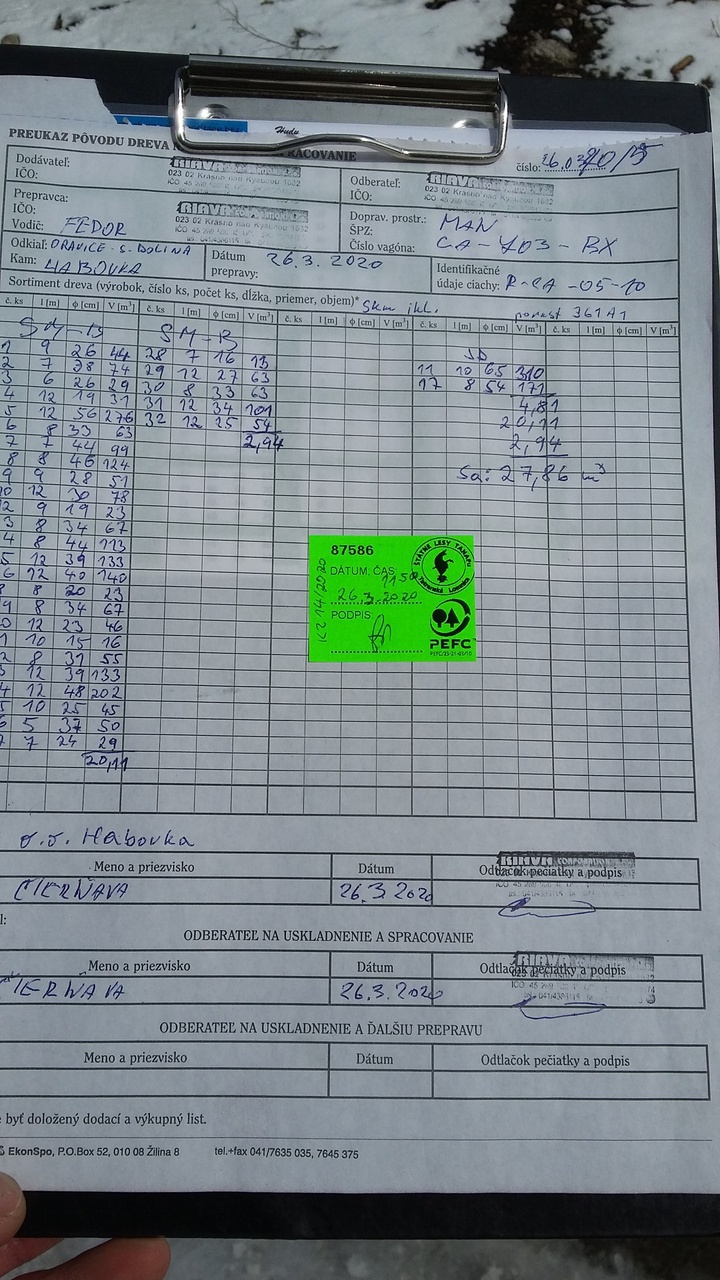 Hudu
PREUKAZ PÔVODU DREVA
PRACOVANIE
číslo: 26.03
Dodávateľ:
IČO:
RIAVA
023 02 Krásno nad Kysucou 1632
Odberateľ:
IČO:
RIAVA
023 02 Krásno nad Kysucou 1632
Prepravca:
IČO:
Vodič: FEDOR
RIAVA
023 02 Krásno nad Kysucou 1632
Doprav. prostr.: MAN
ŠPZ:
Číslo vagóna: CA-403-BX
Odkiaľ: ORAVICE - S. DOLINA
Kam: HABOVKA
Dátum
prepravy: 26.3.2020
Identifikačné
údaje ciachy: R-CA-05-10
Sortiment dreva (výrobok, číslo ks, počet ks, dĺžka, priemer, objem)* Skm ihl. porast 361A1
č. ks l [m] ϕ [cm] V [m³] č. ks l [m] ϕ [cm] V [m³] č. ks l [m] ϕ [cm] V [m³] č. ks l [m] ϕ [cm] V [m³] č. ks l [m] ϕ [cm] V [m³]
SM-B
JD
1 9 26 44 28 7 16 13
2 7 38 74 29 12 27 63 11 10 65 310
3 6 26 29 30 8 33 63 17 8 54 171
4 12 19 31 31 12 34 101 4,81
5 12 56 276 32 12 25 54 20,11
6 8 33 63 2,94 2,94
7 7 44 99 Sa: 27,86 m³
8 8 46 124
9 9 28 51
10 12 30 78
12 9 19 23
3 8 34 67
4 8 44 113
5 12 39 133
6 12 40 140
8 8 20 23
9 8 34 67
0 12 23 46
1 10 15 16
2 8 31 55
3 12 39 133
4 12 48 202
5 10 25 45
6 5 37 50
7 7 24 29
20,11
87586
DÁTUM, ČAS:
11 50
26.3.2020
PODPIS
KZ 14/2020
ŠTÁTNE LESY TANAPU
Tatranská Lomnica
PEFC
o.s. Habovka
Meno a priezvisko Dátum Odtlačok pečiatky a podpis
ČIERŇAVA 26.3.2020
RIAVA
ODBERATEĽ NA USKLADNENIE A SPRACOVANIE
Meno a priezvisko Dátum Odtlačok pečiatky a podpis
IERŇAVA 26.3.2020
RIAVA
ODBERATEĽ NA USKLADNENIE A ĎALŠIU PREPRAVU
Meno a priezvisko Dátum Odtlačok pečiatky a podpis
byť doložený dodací a výkupný list.
EkonSpo, P.O.Box 52, 010 08 Žilina 8 tel.+fax 041/7635 035, 7645 375